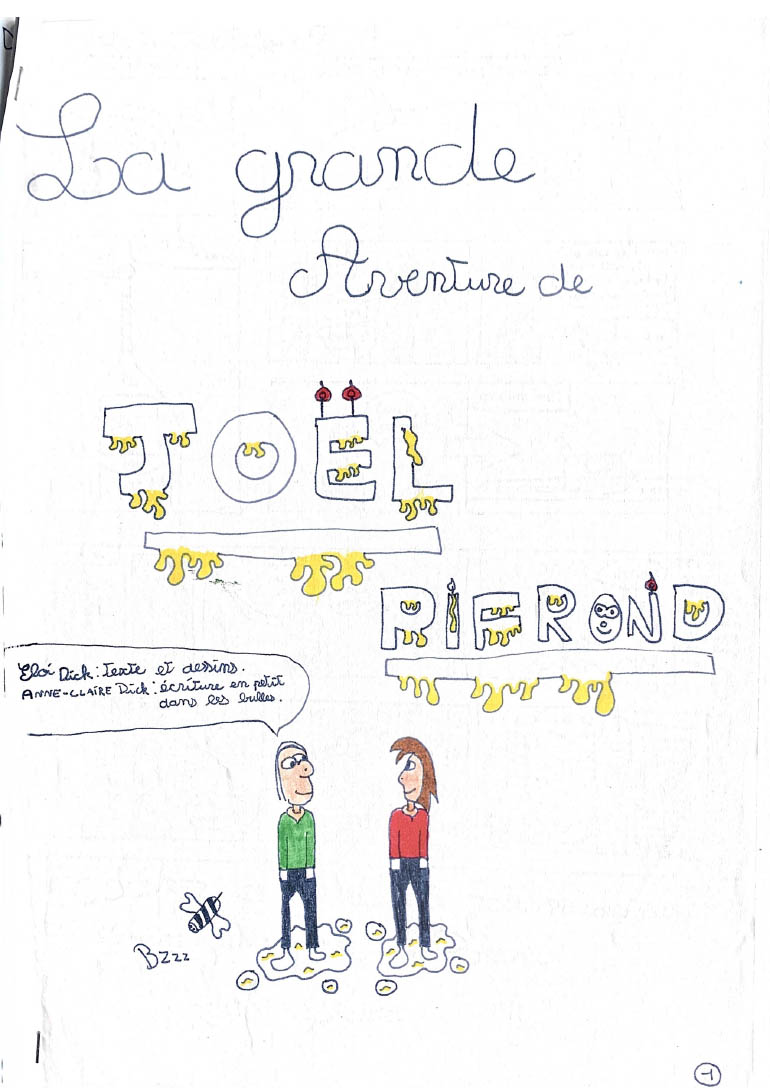 La grande
Aventure de
JOËL
RIFROND
Eloi Dick : texte et dessins.
ANNE-CLAIRE Dick : écriture en petit
dans les bulles.
Bzzz
-1